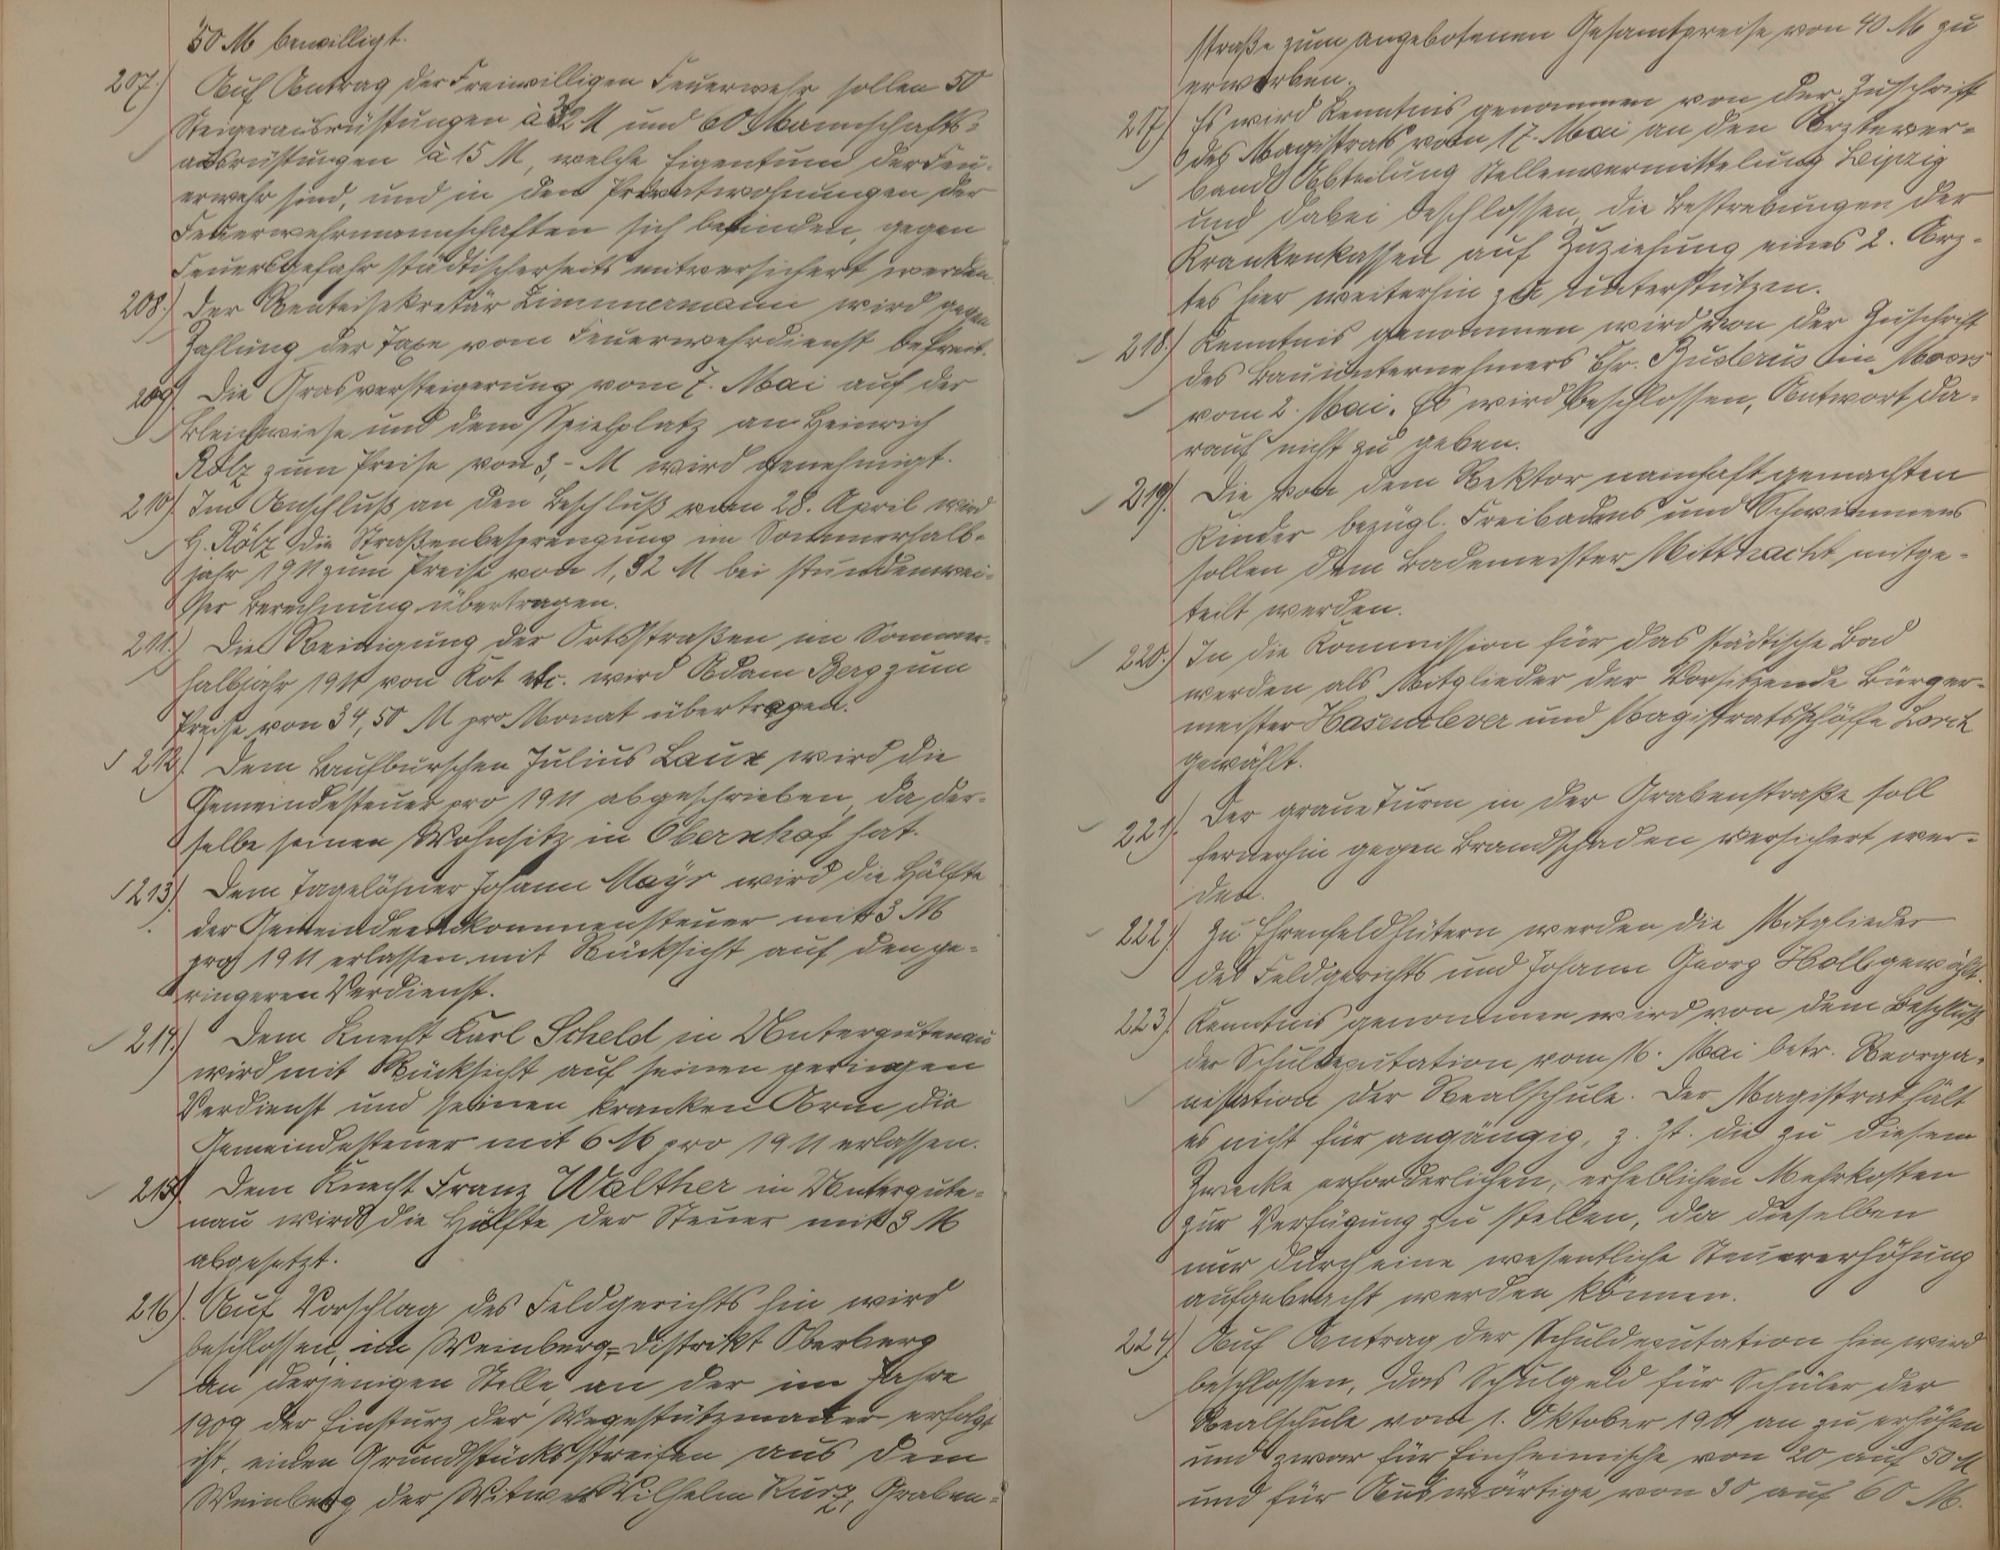 50 M bewilligt.
207.) Auf Antrag der Freiwilligen Feuerwehr sollen 50
Steigerausrüstungen à 32 M und 60 Mannschafts=
ausrüstungen à 15 M, welche Eigentum der Feu-
erwehr sind, und in den Privatwohnungen der
Feuerwehrmannschaften sich befinden, gegen
Feuersgefahr städtischerseits mitversichert werden.
208.) Der Renteisekretär Zimmermann wird gegen
Zahlung der Taxe vom Feuerwehrdienst befreit.
209.) Die Grasversteigerung vom 7. Mai auf der
Bleichwiese und dem Spielplatz an Heinrich
Rölz zum Preise von 3,- M wird genehmigt.
210.) Im Anschluß an den Beschluß vom 28. April wird
H. Rölz die Straßenbesprengung im Sommerhalb-
jahr 1911 zum Preise von 1,32 M bei stundenwei-
ser Berechnung übertragen.
211.) Die Reinigung der Ortsstraßen im Sommer-
halbjahr 1911 von Kot etc. wird Adam Berg zum
Preise von 34,50 M pro Monat übertragen.
212.) Dem Laufburschen Julius Laux wird die
Gemeindesteuer pro 1911 abgeschrieben, da der-
selbe seinen Wohnsitz in Obernhof hat.
213.) Dem Tagelöhner Johann Mayr wird die Hälfte
der Gemeindeeinkommensteuer mit 3 M
pro 1911 erlassen mit Rücksicht auf den ge-
ringeren Verdienst.
214.) Dem Knecht Karl Scheld in Untergutenau
wird mit Rücksicht auf seinen geringen
Verdienst und seinen kranken Arm die
Gemeindesteuer mit 6 M pro 1911 erlassen.
215.) Dem Knecht Franz Walther in Untergute-
nau wird die Hälfte der Steuer mit 3 M
abgesetzt.
216.) Auf Vorschlag des Feldgerichts hin wird
beschlossen, im Weinberg=Distrikt Oberberg
an derjenigen Stelle, an der im Jahre
1909 der Einsturz der Wegestützmauer erfolgt
ist, einen Grundstücksstreifen aus dem
Weinberg der Witwe Wilhelm Kurz, Graben=
straße zum angebotenen Gesamtpreise von 40 M zu
erwerben.
217.) Es wird Kenntnis genommen von der Zuschrift
des Magistrats vom 17. Mai an den Ärztever-
band Abteilung Stellenvermittelung Leipzig
und dabei beschlossen, die Bestrebungen der
Krankenkassen auf Zuziehung eines 2. Arz-
tes hier weiterhin zu unterstützen.
218.) Kenntnis genommen wird von der Zuschrift
des Bauunternehmers Chr. Buderus in
vom 2. Mai. Es wird beschlossen, Antwort da-
rauf nicht zu geben.
219.) Die von dem Rektor namhaft gemachten
Kinder bezügl. Freibadens und Schwimmens
sollen dem Bademeister Mittnacht mitge-
teilt werden.
220.) In die Kommission für das städtische Bad
werden als Mitglieder der Vorsitzende Bürger-
meister Hasenclever und Magistratsschöffe Lorch
gewählt.
221.) Der graue Turm in der Grabenstraße soll
fernerhin gegen Brandschaden versichert wer-
den.
222.) Zu Ehrenfeldhütern werden die Mitglieder
des Feldgerichts und Johann Georg Holl gewählt.
223.) Kenntnis genommen wird von dem Beschluß
der Schuldeputation vom 16. Mai betr. Reorga-
nisation der Realschule. Der Magistrat hält
es nicht für angängig, z. Zt. die zu diesem
Zwecke erforderlichen, erheblichen Mehrkosten
zur Verfügung zu stellen, da dieselben
nur durch eine wesentliche Steuererhöhung
aufgebracht werden können.
224.) Auf Antrag der Schuldeputation hin wird
beschlossen, das Schulgeld für Schüler der
Realschule vom 1. Oktober 1911 an zu erhöhen
und zwar für Einheimische von 20 auf 50 M
und für Auswärtige von 30 auf 60 M.